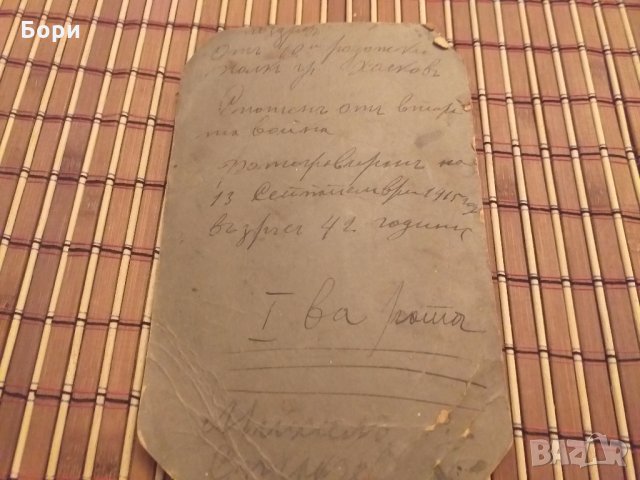 Бори
Отъ 10и родопски
полкъ гр Хасково
Спомѣнъ отъ втора
та война
Фатографиранъ на
13 Септемврий 1915 год
възрастъ 42 години
I ва рота
BAZAR